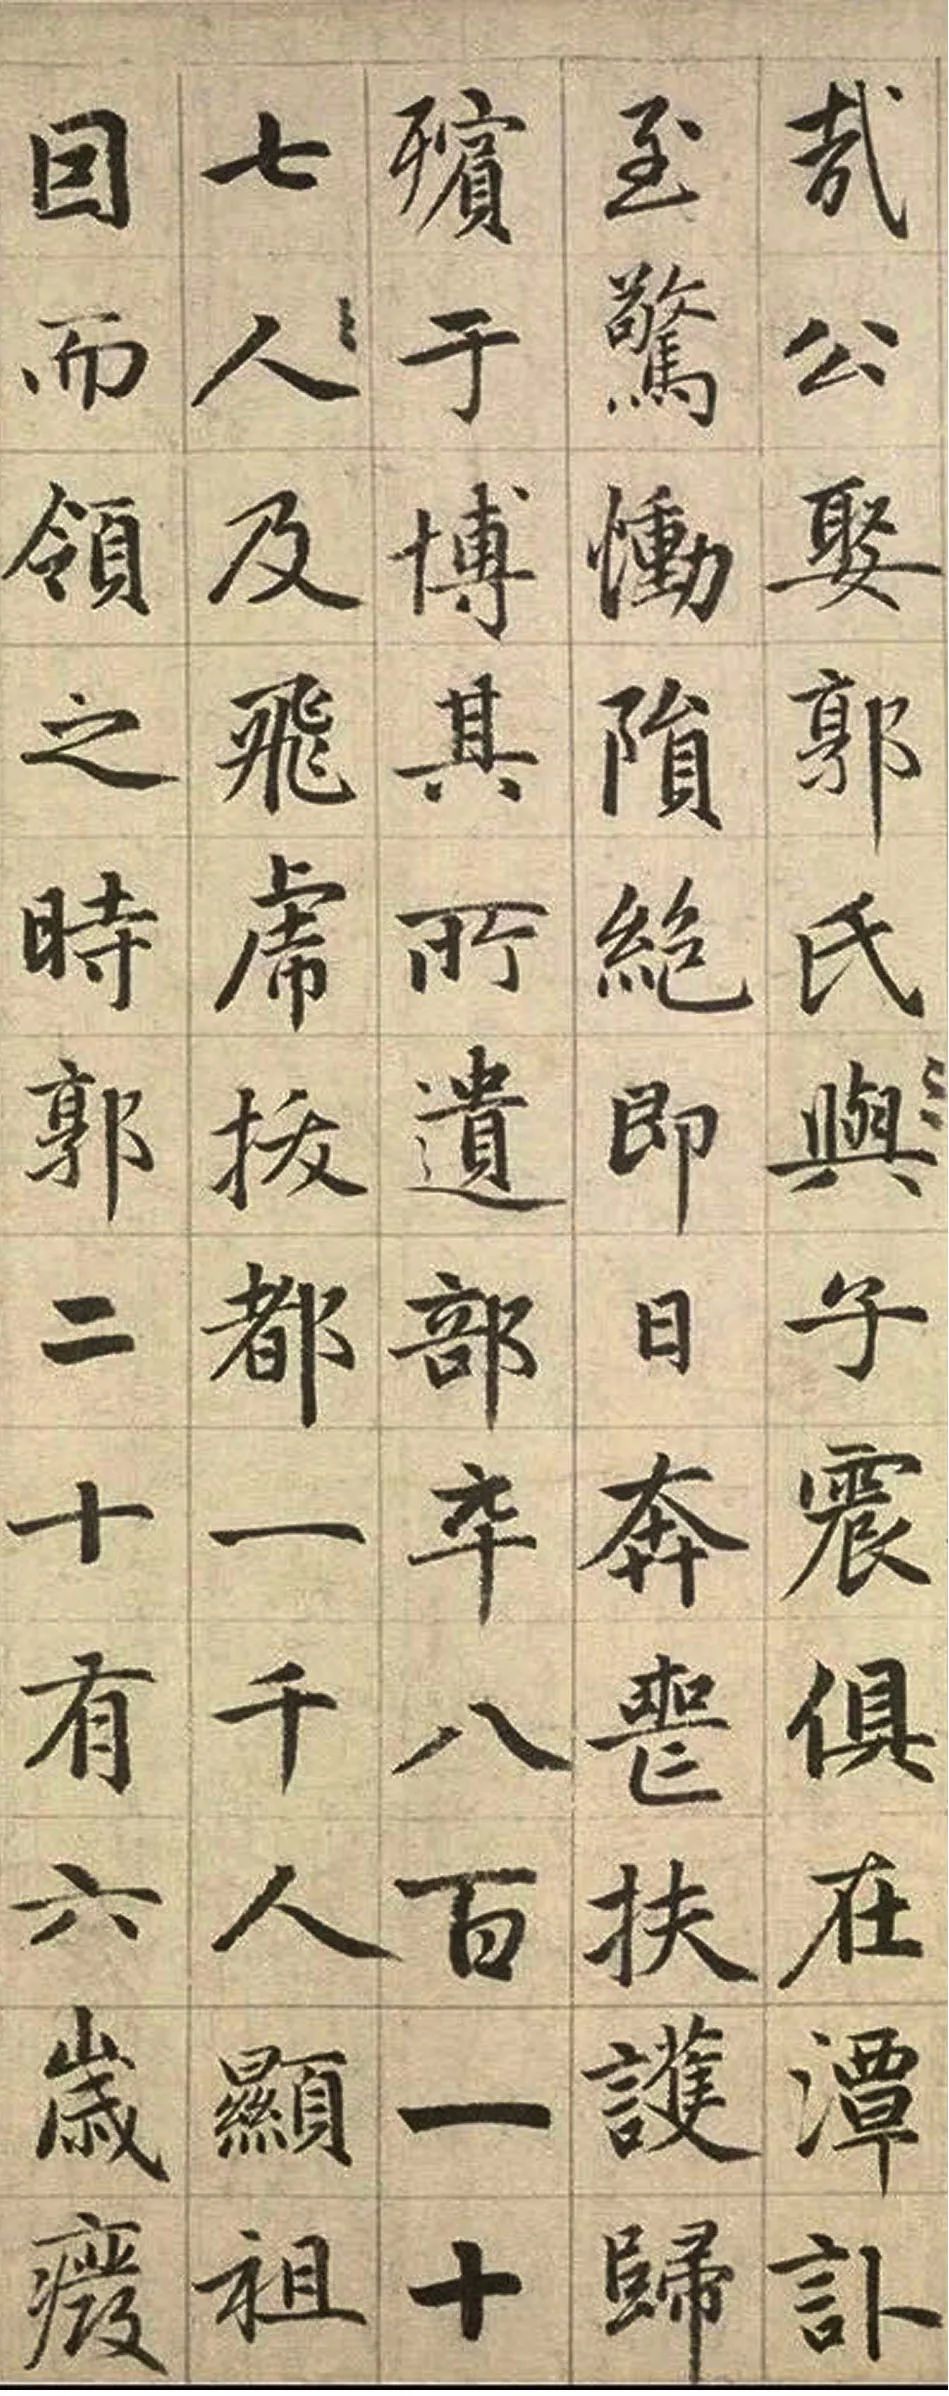 哉公娶郭氏與子震俱在潭訃
至驚慟隕絶即日奔喪扶護歸
殯于博其所遺部卒八百一十
七人及飛虎拔都一千人顯祖
囙而領之時郭二十有六歲癈